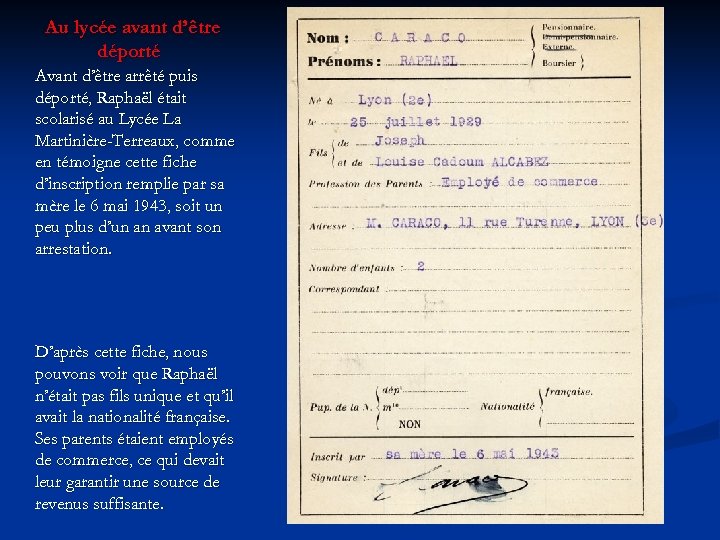 Au lycée avant d'être
déporté
Avant d'être arrêté puis
déporté, Raphaël était
scolarisé au Lycée La
Martinière-Terreaux, comme
en témoigne cette fiche
d'inscription remplie par sa
mère le 6 mai 1943, soit un
peu plus d'un an avant son
arrestation.
D'après cette fiche, nous
pouvons voir que Raphaël
n'était pas fils unique et qu'il
avait la nationalité française.
Ses parents étaient employés
de commerce, ce qui devait
leur garantir une source de
revenus suffisante.
Nom : CARACO
Prénoms : RAPHAEL
Pensionnaire.
Demi-pensionnaire.
Externe.
Boursier
Né à Lyon (2e)
le 25 juillet 1929
Fils de Joseph
et de Louise Cadoum ALCABEZ
Profession des Parents : Employé de commerce
Adresse : M. CARACO, 11 rue Turenne, LYON (3e)
Nombre d'enfants : 2
Correspondant
Pup. de la N. dépt
mle
NON
Nationalité française.
Inscrit par sa mère le 6 mai 1943
Signature : Caraco